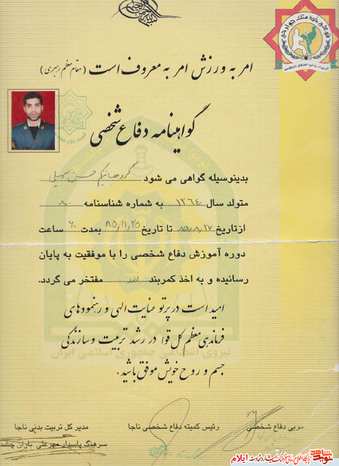 امر به ورزش امر به معروف است (مقام معظم رهبری)
گواهینامه دفاع شخصی
بدینوسیله گواهی می شود گروهبانیکم حسن
متولد سال ۱۳۶۶ به شماره شناسنامه ۸۰
از تاریخ تا تاریخ ۸۵/۱۱/۲۵ بمدت ۶۰ ساعت
دوره آموزش دفاع شخصی را با موفقیت به پایان
رسانیده و به اخذ کمربند مفتخر می گردد.
امید است در پرتو عنایت الهی و رهنمودهای
فرماندهی معظم کل قوا در رشد تربیت و سازندگی
جسم و روح خویش موفق باشید.
نیروی انتظامی جمهوری اسلامی ایران
مربی دفاع شخصی
رئیس کمیته دفاع شخصی ناجا
مدیر کل تربیت بدنی ناجا
سرهنگ پاسدار مهرعلی باران چشمه
ایلام